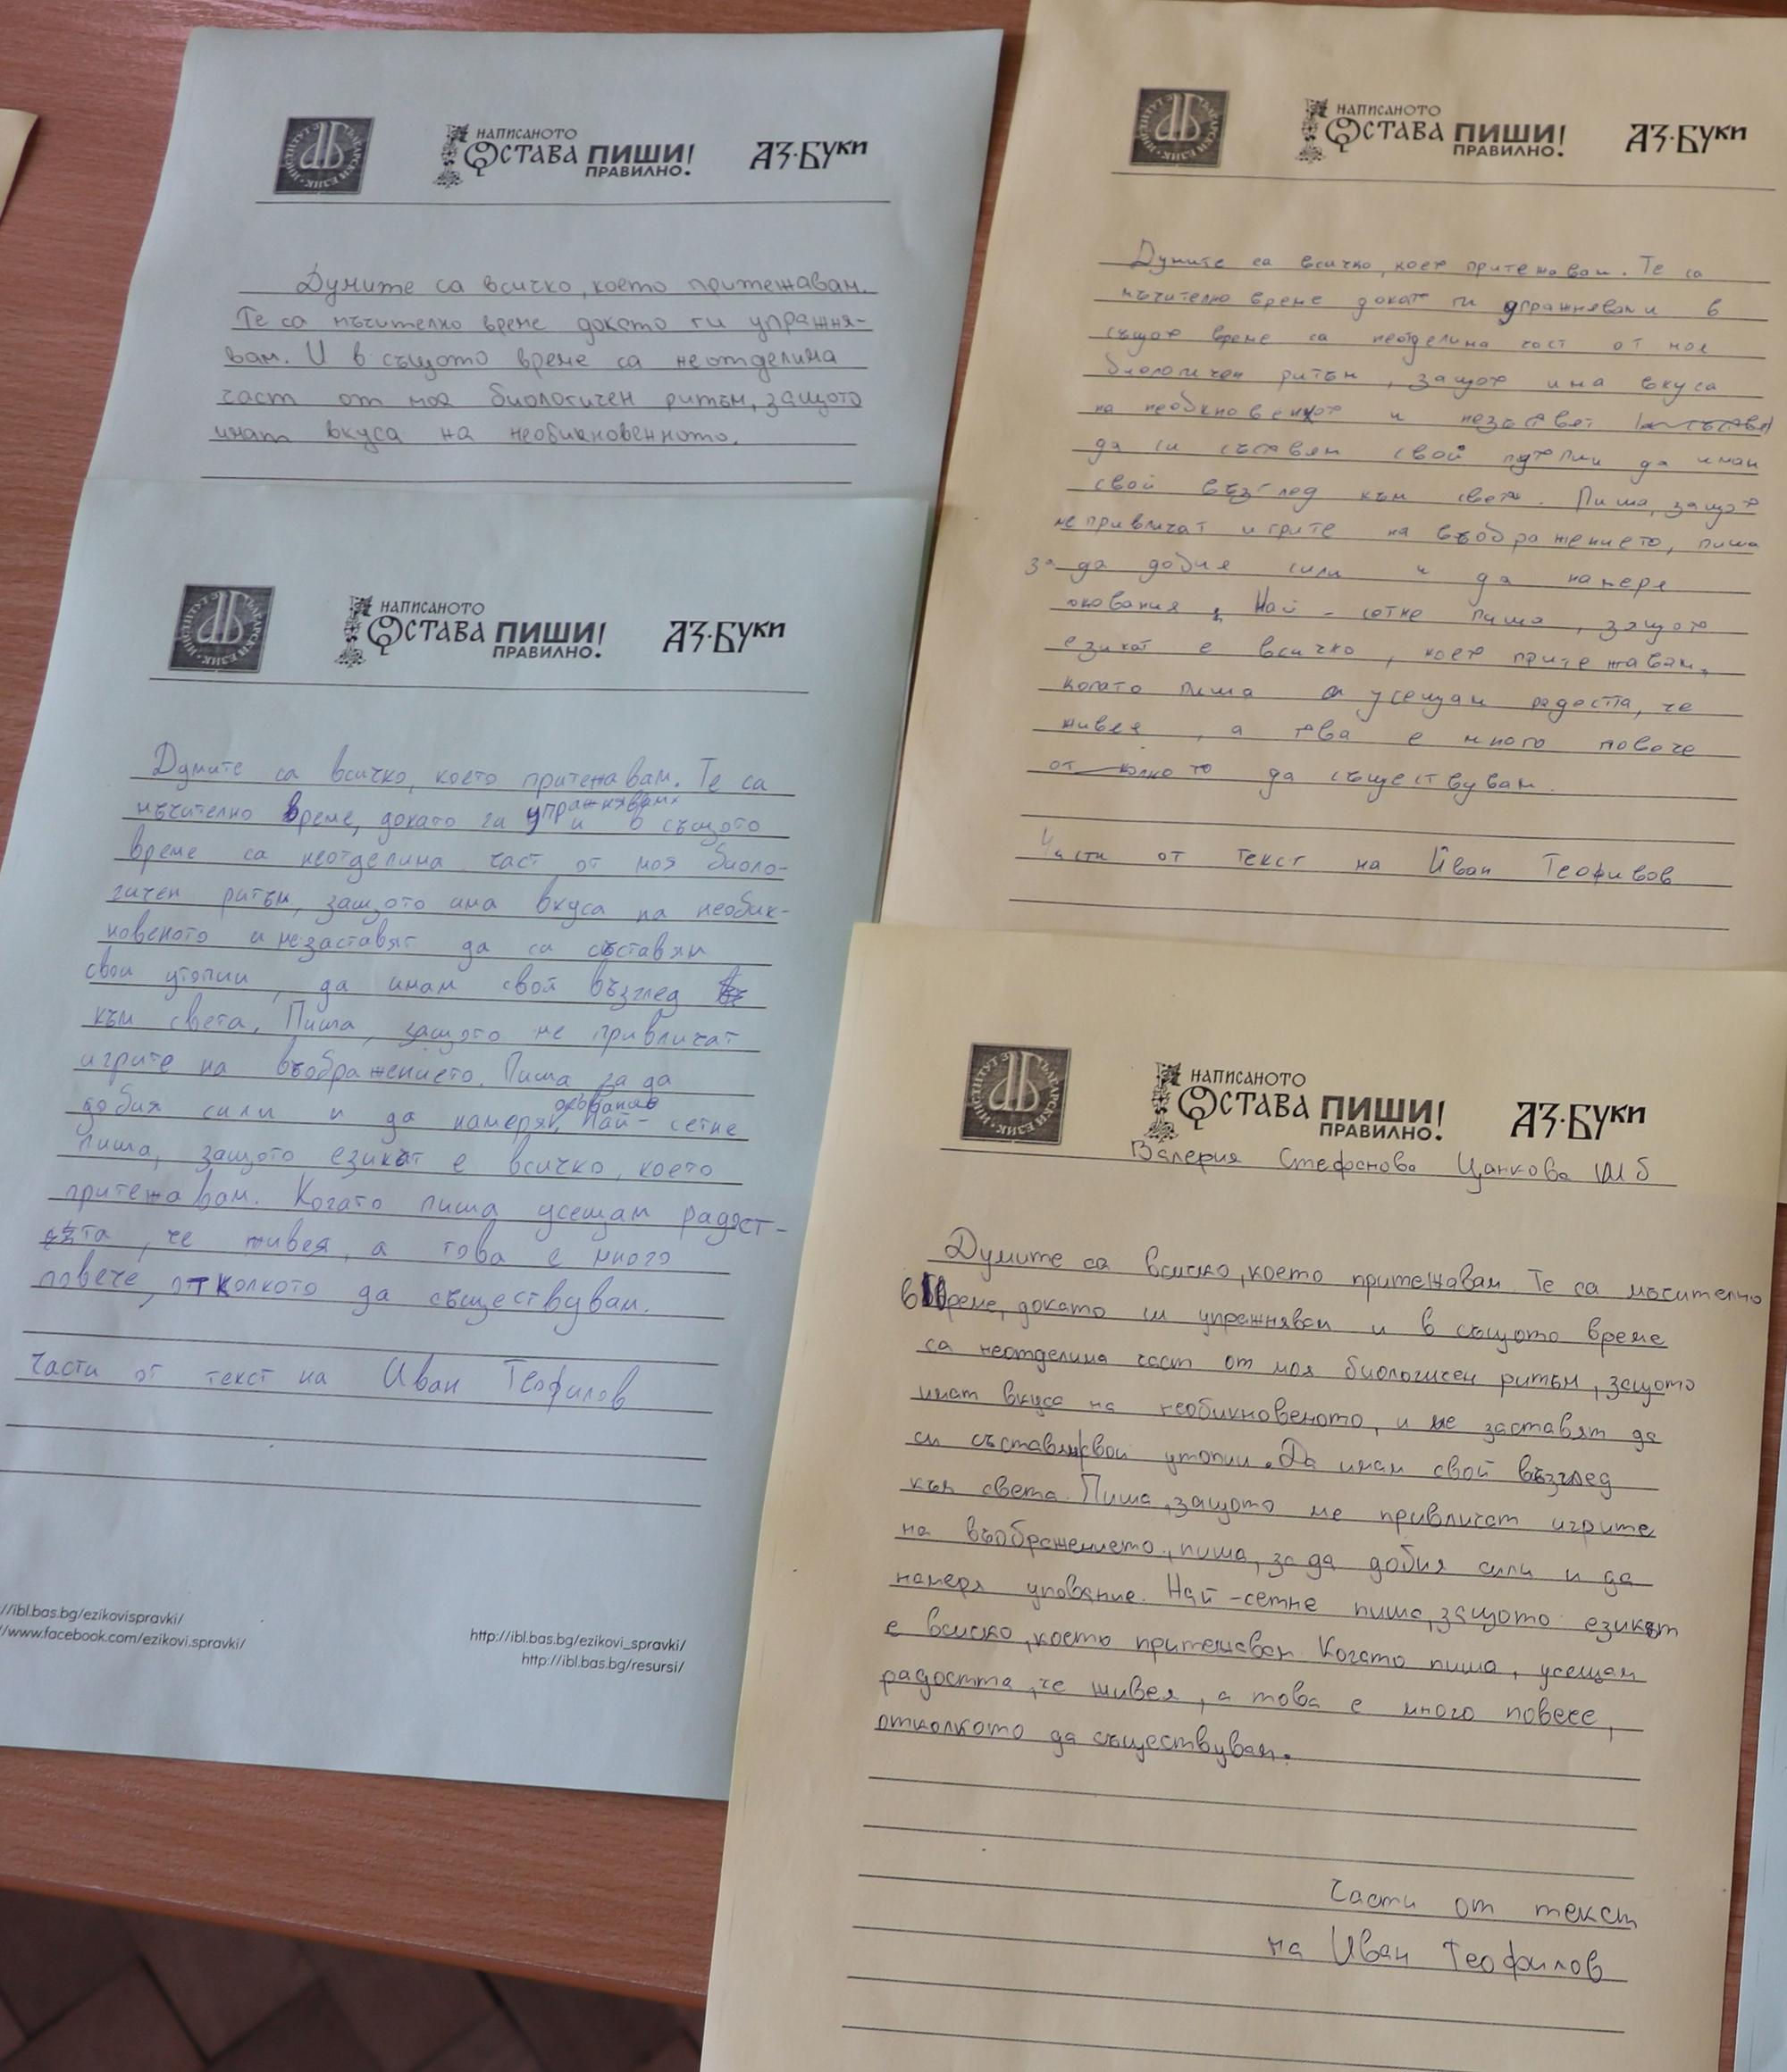 НАПИСАНОТО
ОСТАВА ПИШИ!
ПРАВИЛНО!
АЗ·БУКИ
Думите са всичко, което притежавам.
Те са мъчително време докато ги упражня-
вам. И в същото време са неотделима
част от моя биологичен ритъм, защото
имат вкуса на необикновенното.
НАПИСАНОТО
ОСТАВА ПИШИ!
ПРАВИЛНО!
АЗ·БУКИ
Думите са всичко, което притежавам. Те са
мъчително време докато ги упражнявам и в
същото време са неотделима част от моя
биологичен ритъм, защото има вкуса
на необкновеното и
да си съставям свой да имам
свой възглед към света. Пиша, защото
ме привличат игрите на въображението, пиша
за да добия сили и да намеря
Най-сетне пиша, защото
езикът е всичко, което притежавам,
когато пиша усещам радостта, че
живея, а това е много повече
от колкото да съществувам.
Части от текст на Иван Теофивов
НАПИСАНОТО
ОСТАВА ПИШИ!
ПРАВИЛНО!
АЗ·БУКИ
Думите са всичко, което притежавам. Те са
мъчително време, докато ги упражнявам и в същото
време са неотделима част от моя биоло-
гичен ритъм, защото има вкуса на необик-
новеното и незаставят да си съставям
свои утопии, да имам свой възглед
към света. Пиша, защото ме привличат
игрите на въображението. Пиша за да
добия сили и да намеря Най-сетне
пиша, защото езикът е всичко, което
притежавам. Когато пиша усещам радост-
та, че живея, а това е много
повече, отколкото да съществувам.
Части от текст на Иван Теофилов
//ibl.bas.bg/ezikovispravki/
//www.facebook.com/ezikovi.spravki/
http://ibl.bas.bg/ezikovi_spravki/
http://ibl.bas.bg/resursi/
НАПИСАНОТО
ОСТАВА ПИШИ!
ПРАВИЛНО!
АЗ·БУКИ
Валерия Стефанова Цанкова
Думите са всичко, което притежавам. Те са мъчително
време, докато ги упражнявам и в същото време
са неотделима част от моя биологичен ритъм, защото
имат вкуса на необикновеното, и ме заставят да
си съставям свои утопии. Да имам свой възглед
към света. Пиша, защото ме привличат игрите
на въображението, пиша, за да добия сили и да
намеря упование. Най-сетне пиша, защото езикът
е всичко, което притежавам. Когато пиша, усещам
радостта, че живея, а това е много повече,
отколкото да съществувам.
Части от текст
на Иван Теофилов